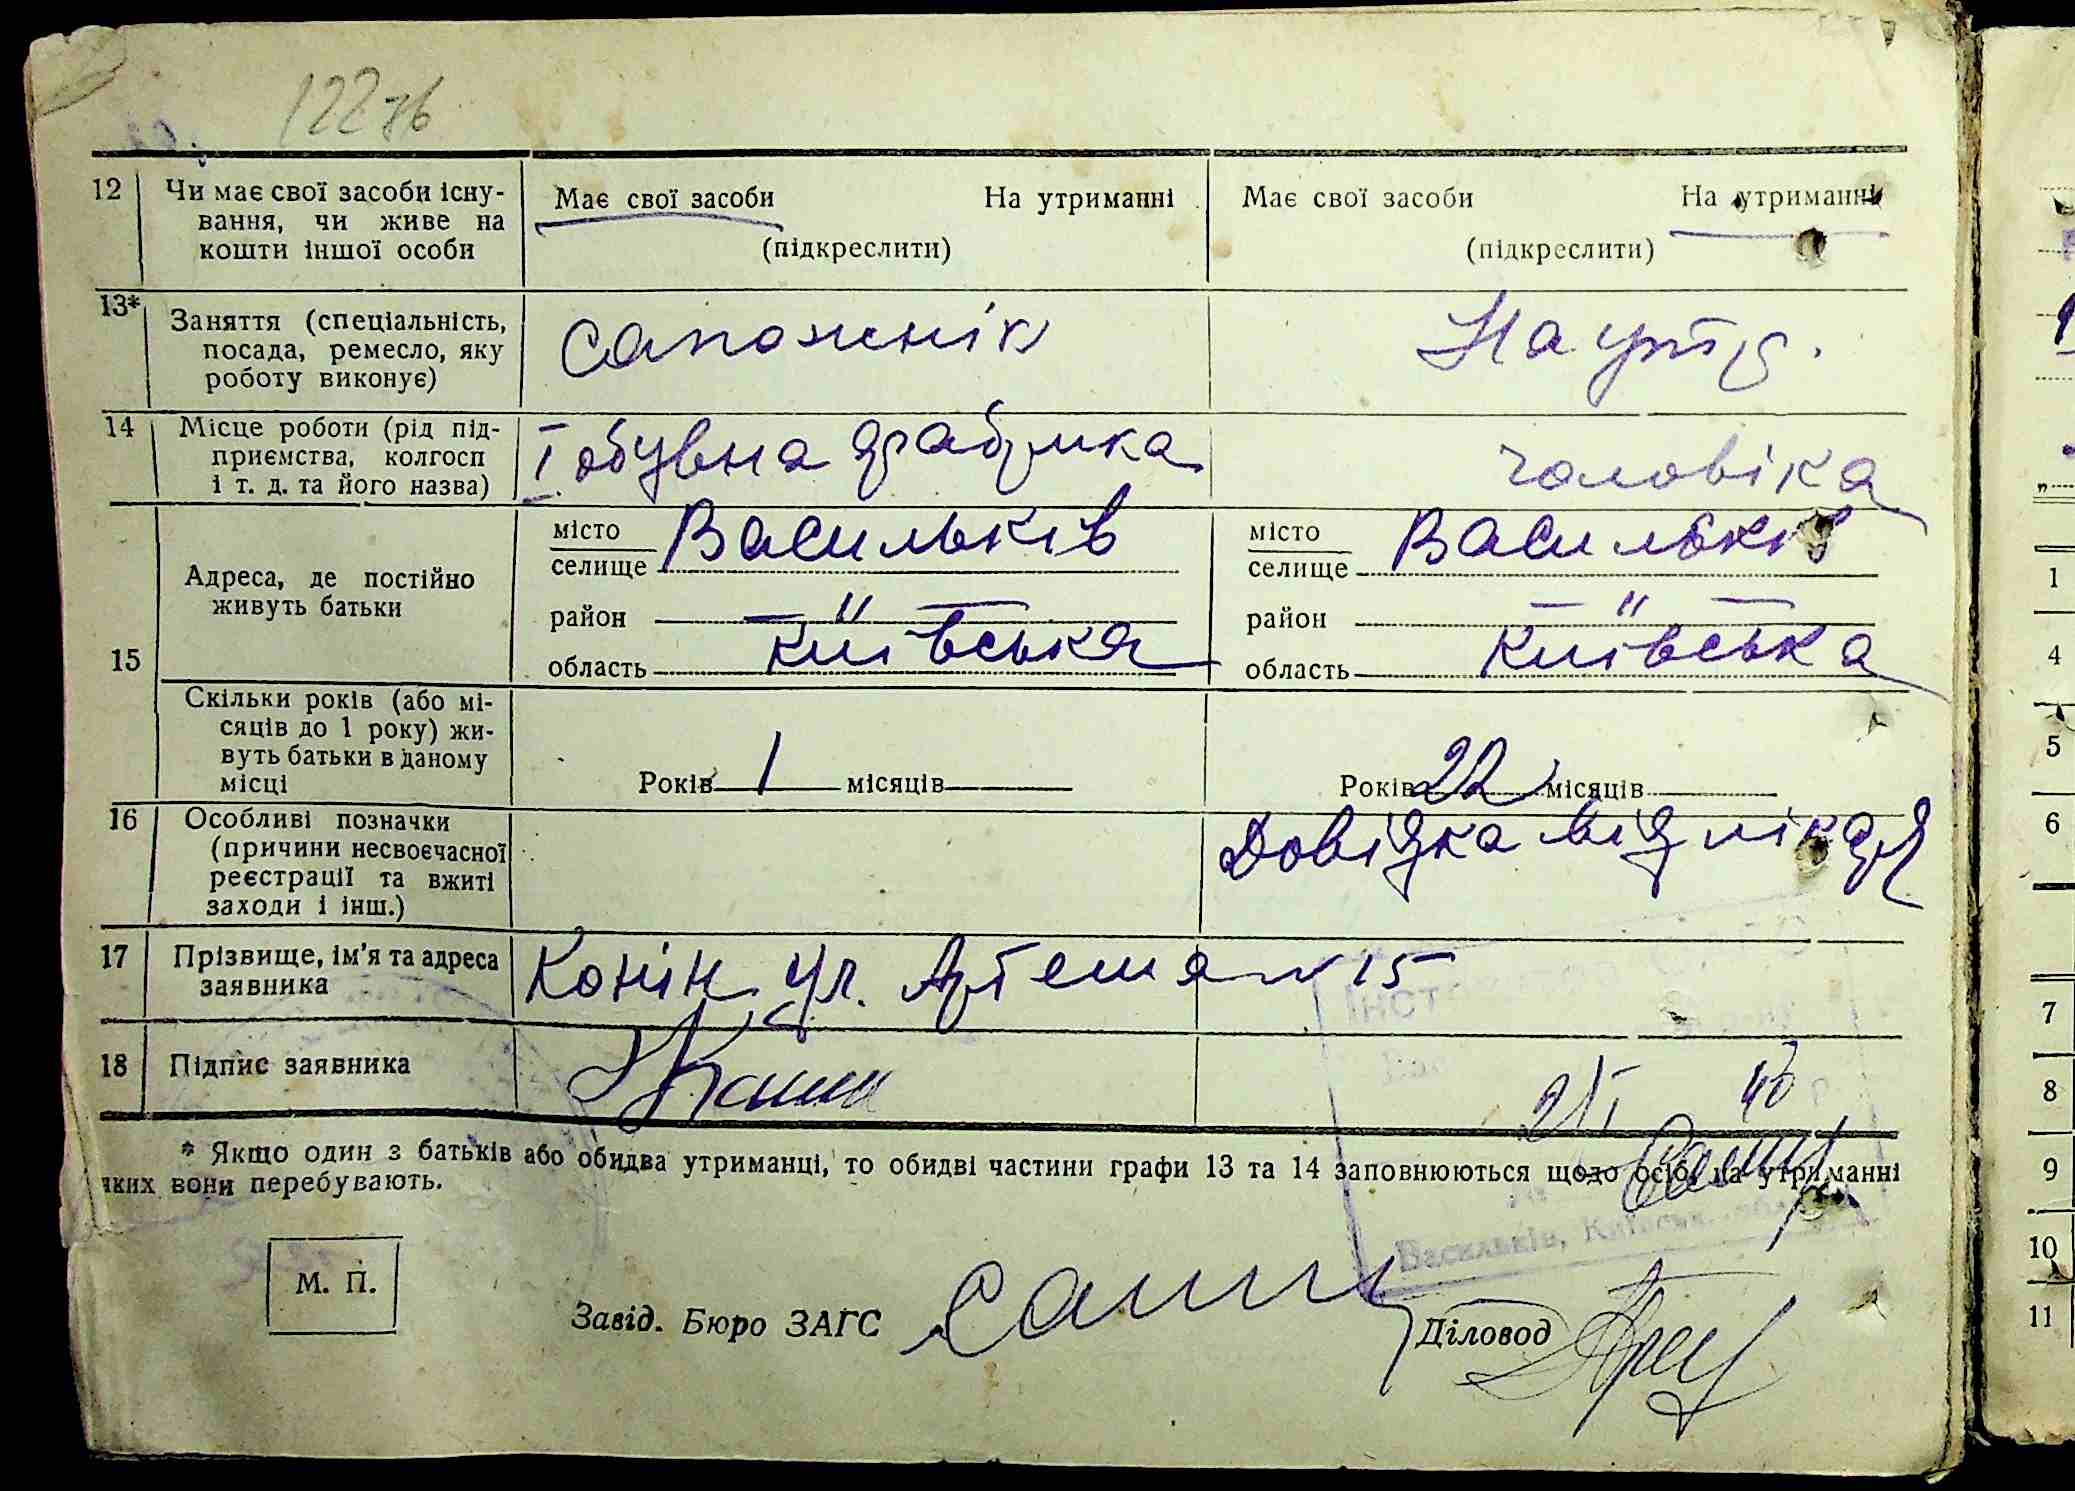 122 зв
12 Чи має свої засоби існу-
вання, чи живе на
кошти іншої особи
Має свої засоби На утриманні
(підкреслити)
Має свої засоби На утриманні
(підкреслити)
13* Заняття (спеціальність,
посада, ремесло, яку
роботу виконує)
сапожнік
На утр.
14 Місце роботи (рід під-
приємства, колгосп
і т. д. та його назва)
І обувна фабрика
чоловіка
15 Адреса, де постійно
живуть батьки
місто Васильків
селище
район — " —
область Київська
місто Васильків
селище
район — " —
область Київська
Скільки років (або мі-
сяців до 1 року) жи-
вуть батьки в даному
місці
Років 1 місяців
Років 22 місяців
16 Особливі позначки
(причини несвоєчасної
реєстрації та вжиті
заходи і інш.)
Довідка від лікаря
17 Прізвище, ім'я та адреса
заявника
Конін ул. Артема N 15
18 Підпис заявника
* Якщо один з батьків або обидва утриманці, то обидві частини графи 13 та 14 заповнюються щодо осіб, на утриманні
яких вони перебувають.
Васильків, Київськ.
М. П.
Завід. Бюро ЗАГС
Діловод
1
4
5
6
7
8
9
10
11